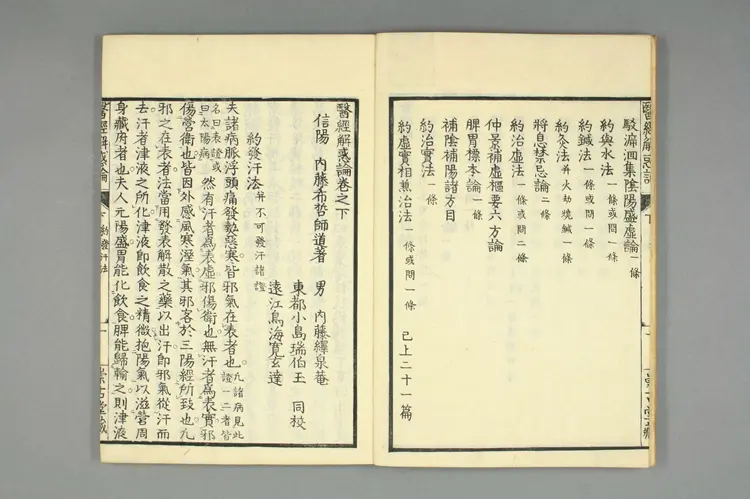 醫經解惑論 下
駁溯洄集陰陽盛虛論一條
約與水法 一條或問一條
約鍼法 一條或問一條
約灸法 幷火劫燒鍼一條
將息禁忌論 二條
約治虛法 一條或問二條
仲景補虛樞要六方論
脾胃標本論 一條
補陰補陽諸方目
約治實法 一條
約虛實相兼治法 一條或問一條 已上二十一篇
醫經解惑論卷之下
信陽 內藤希哲師道著 男 內藤繹泉菴
東都小島瑞伯玉 同校
遠江鳥海寬玄達
約發汗法 幷不可發汗諸證
夫諸病脈浮頭痛發熱惡寒皆邪氣在表者也凡諸病見此證一二者皆
名曰表證或曰太陽病然有汗者爲表虛邪傷衞也無汗者爲表實邪
傷營衞也皆因外感風寒溼氣其邪客於三陽經所致也凡
邪之在表者法當用發表解散之藥以出汗即邪氣從汗而
去汗者津液之所化津液即飲食之精微抱陽氣以滋營周
身藏府者也夫人元陽盛胃能化飲食脾能歸輸之則津液
醫經解惑論 約發汗法